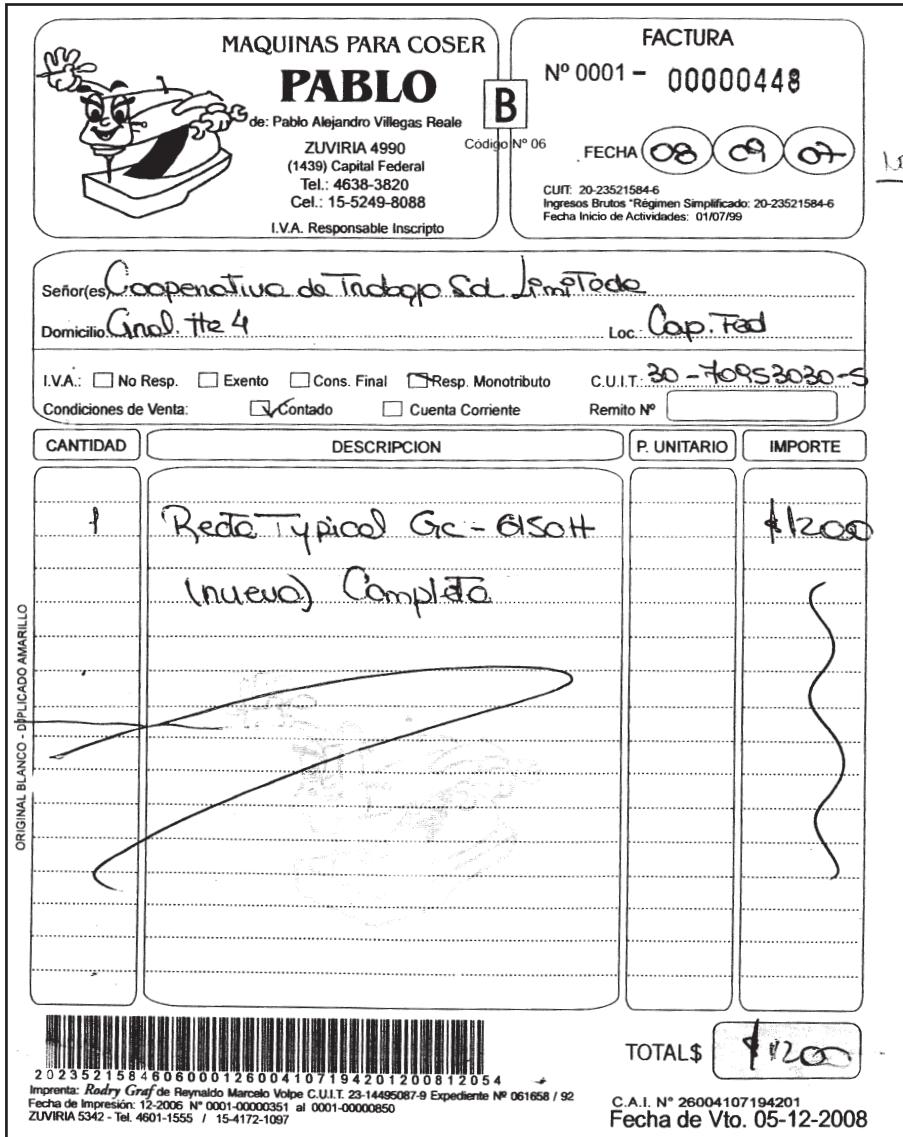 MAQUINAS PARA COSER
PABLO
de: Pablo Alejandro Villegas Reale
ZUVIRIA 4990
(1439) Capital Federal
Tel.: 4638-3820
Cel.: 15-5249-8088
I.V.A. Responsable Inscripto
B
Código Nº 06
FACTURA
Nº 0001 - 00000448
FECHA 08 09 07
CUIT: 20-23521584-6
Ingresos Brutos "Régimen Simplificado: 20-23521584-6
Fecha Inicio de Actividades: 01/07/99
Señor(es) Cooperativa de Trabajo Sol Limitada
Domicilio Gral. Hz 4 Loc. Cap. Fed
I.V.A.: No Resp. Exento Cons. Final Resp. Monotributo C.U.I.T.: 30-70953030-5
Condiciones de Venta: Contado Cuenta Corriente Remito Nº
CANTIDAD DESCRIPCION P. UNITARIO IMPORTE
1 Recta Typical GC-6150H $1200
(nueva) Completa
ORIGINAL BLANCO - DUPLICADO AMARILLO
TOTAL$ $1200
202352158460600012600410719420120081205 4
Imprenta: Rodry Graf de Reynaldo Marcelo Volpe C.U.I.T. 23-14495087-9 Expediente Nº 061658 / 92
Fecha de Impresión: 12-2006 N° 0001-00000351 al 0001-00000850
ZUVIRIA 5342 - Tel. 4601-1555 / 15-4172-1097
C.A.I. N° 260041071942​01
Fecha de Vto. 05-12-2008